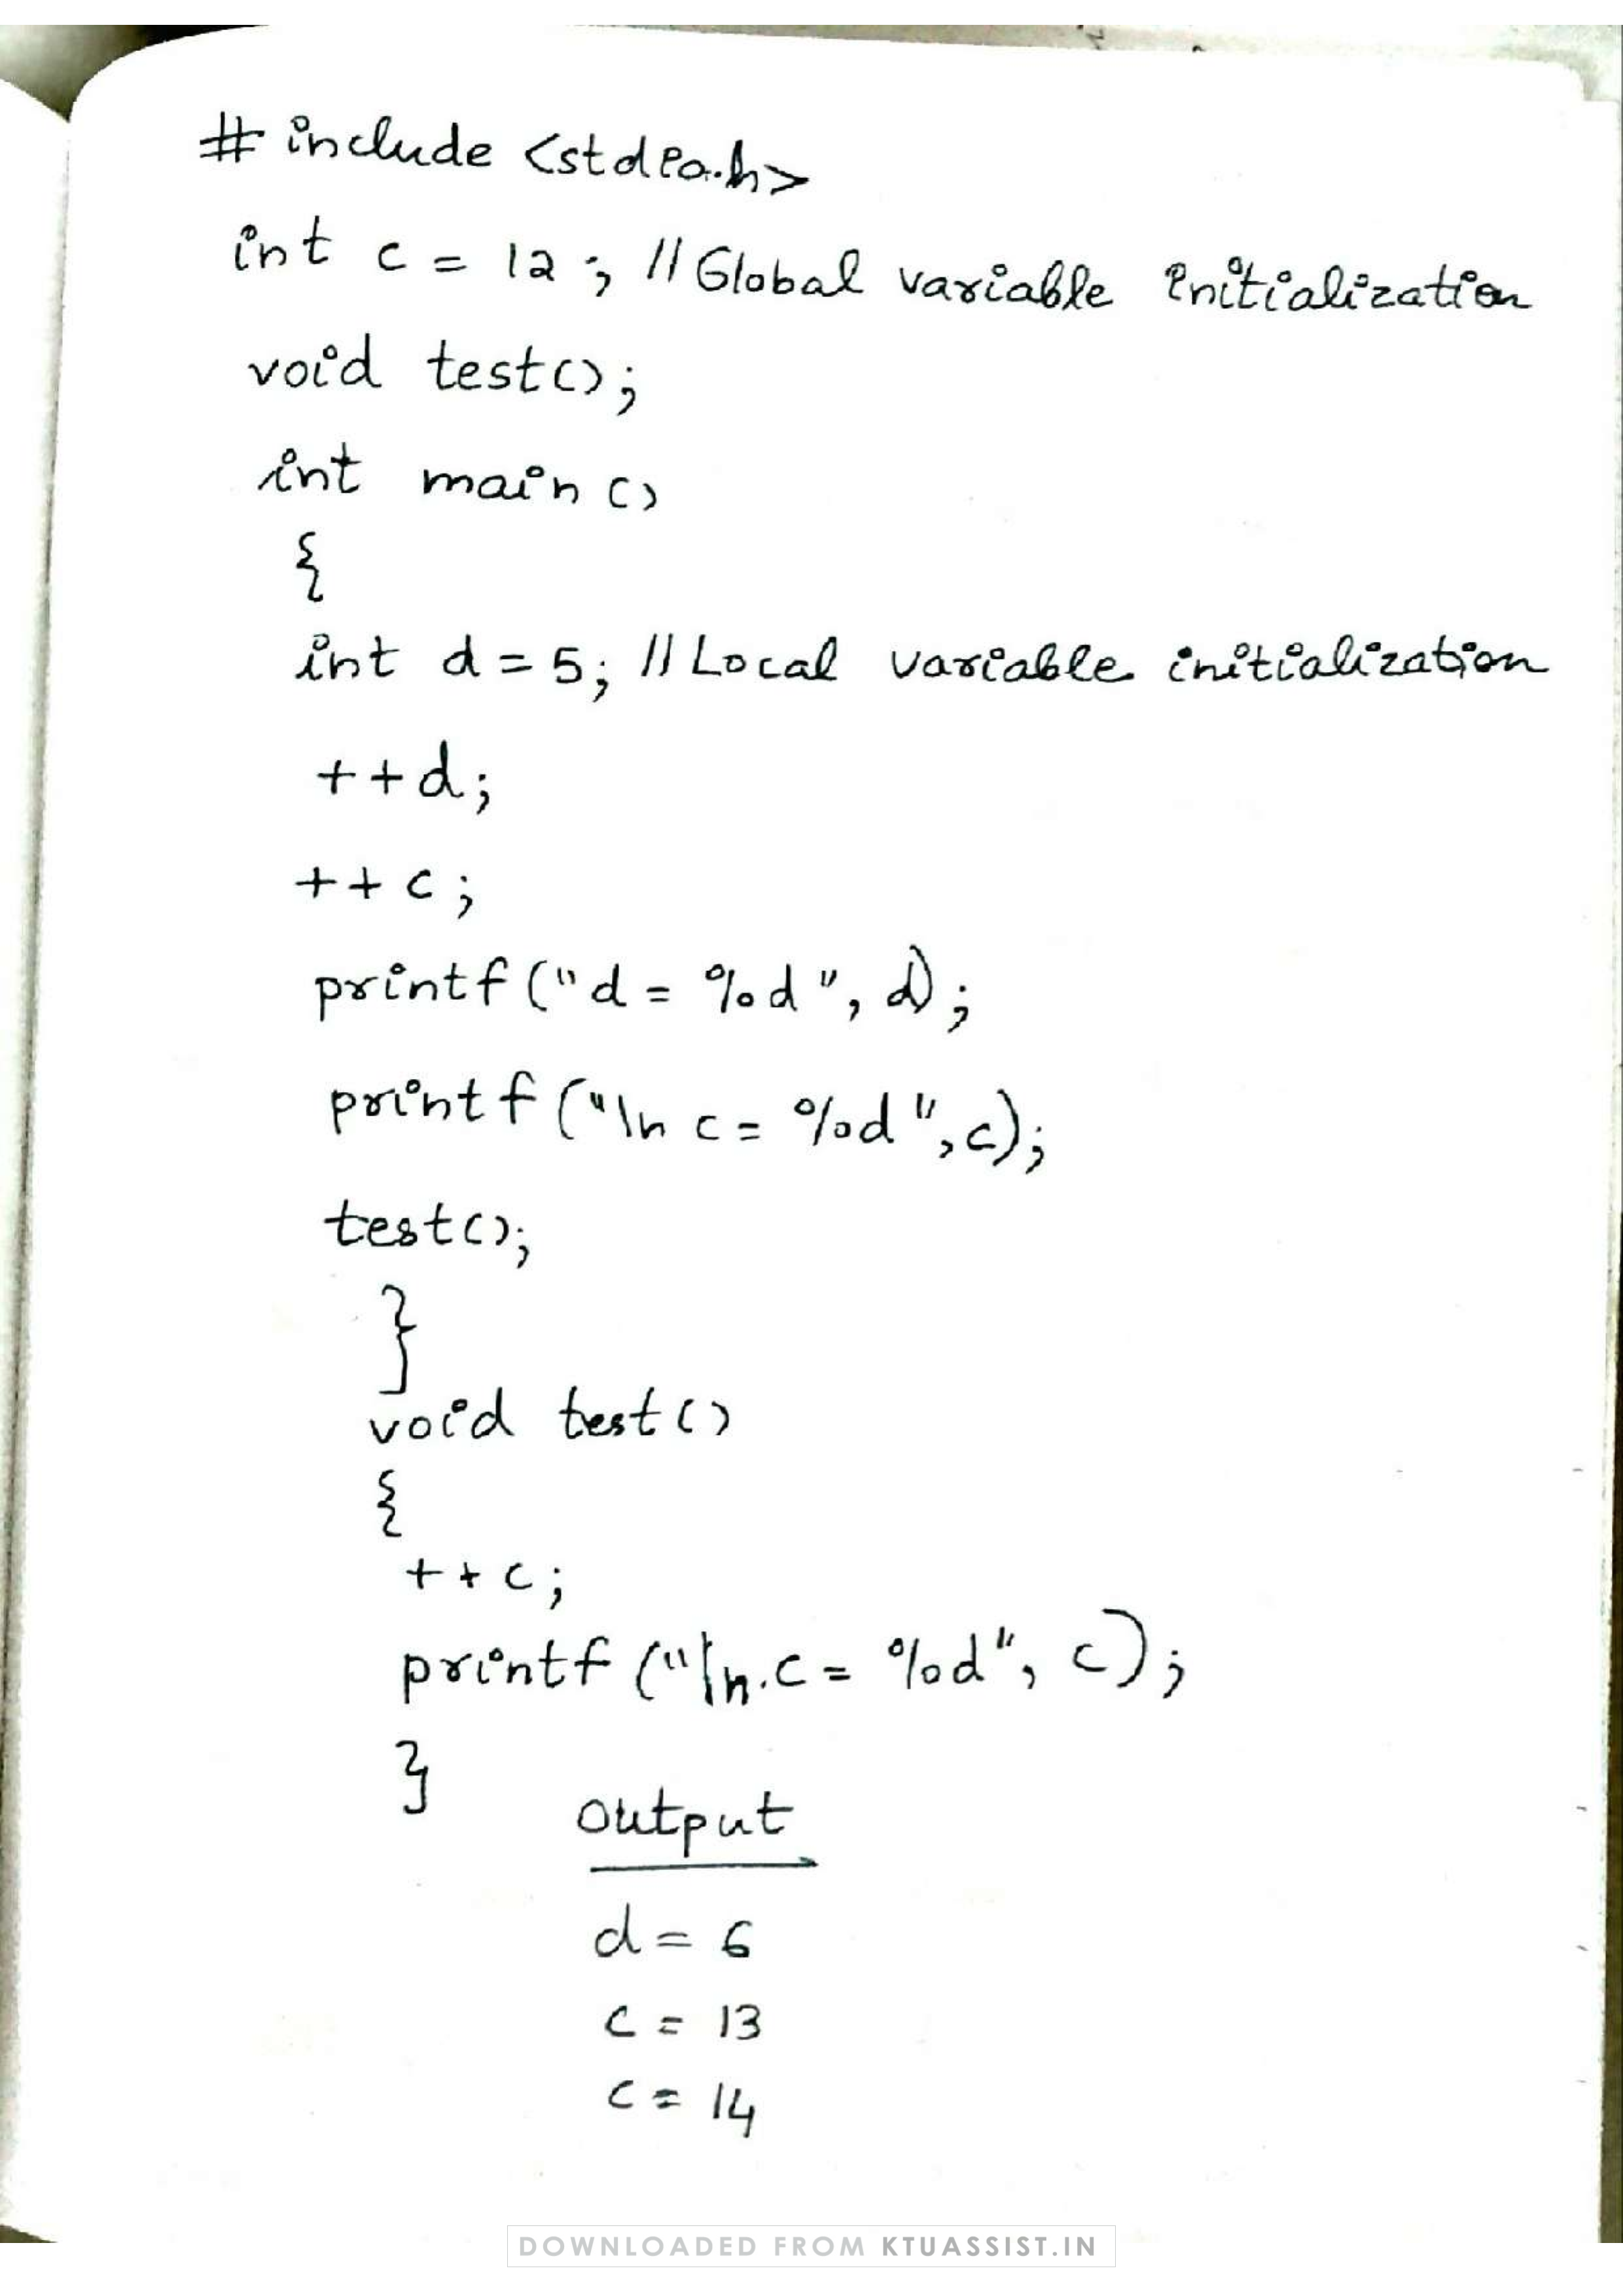 # include <stdio.h>
int c = 12 ; // Global variable initialization
void test();
int main ()
{
int d = 5; // Local variable initialization
++d;
++c;
printf ("d = %d", d);
printf ("\n c = %d", c);
test();
}
void test()
{
++c;
printf ("\n.c = %d", c);
}
output
d = 6
c = 13
c = 14
DOWNLOADED FROM KTUASSIST.IN